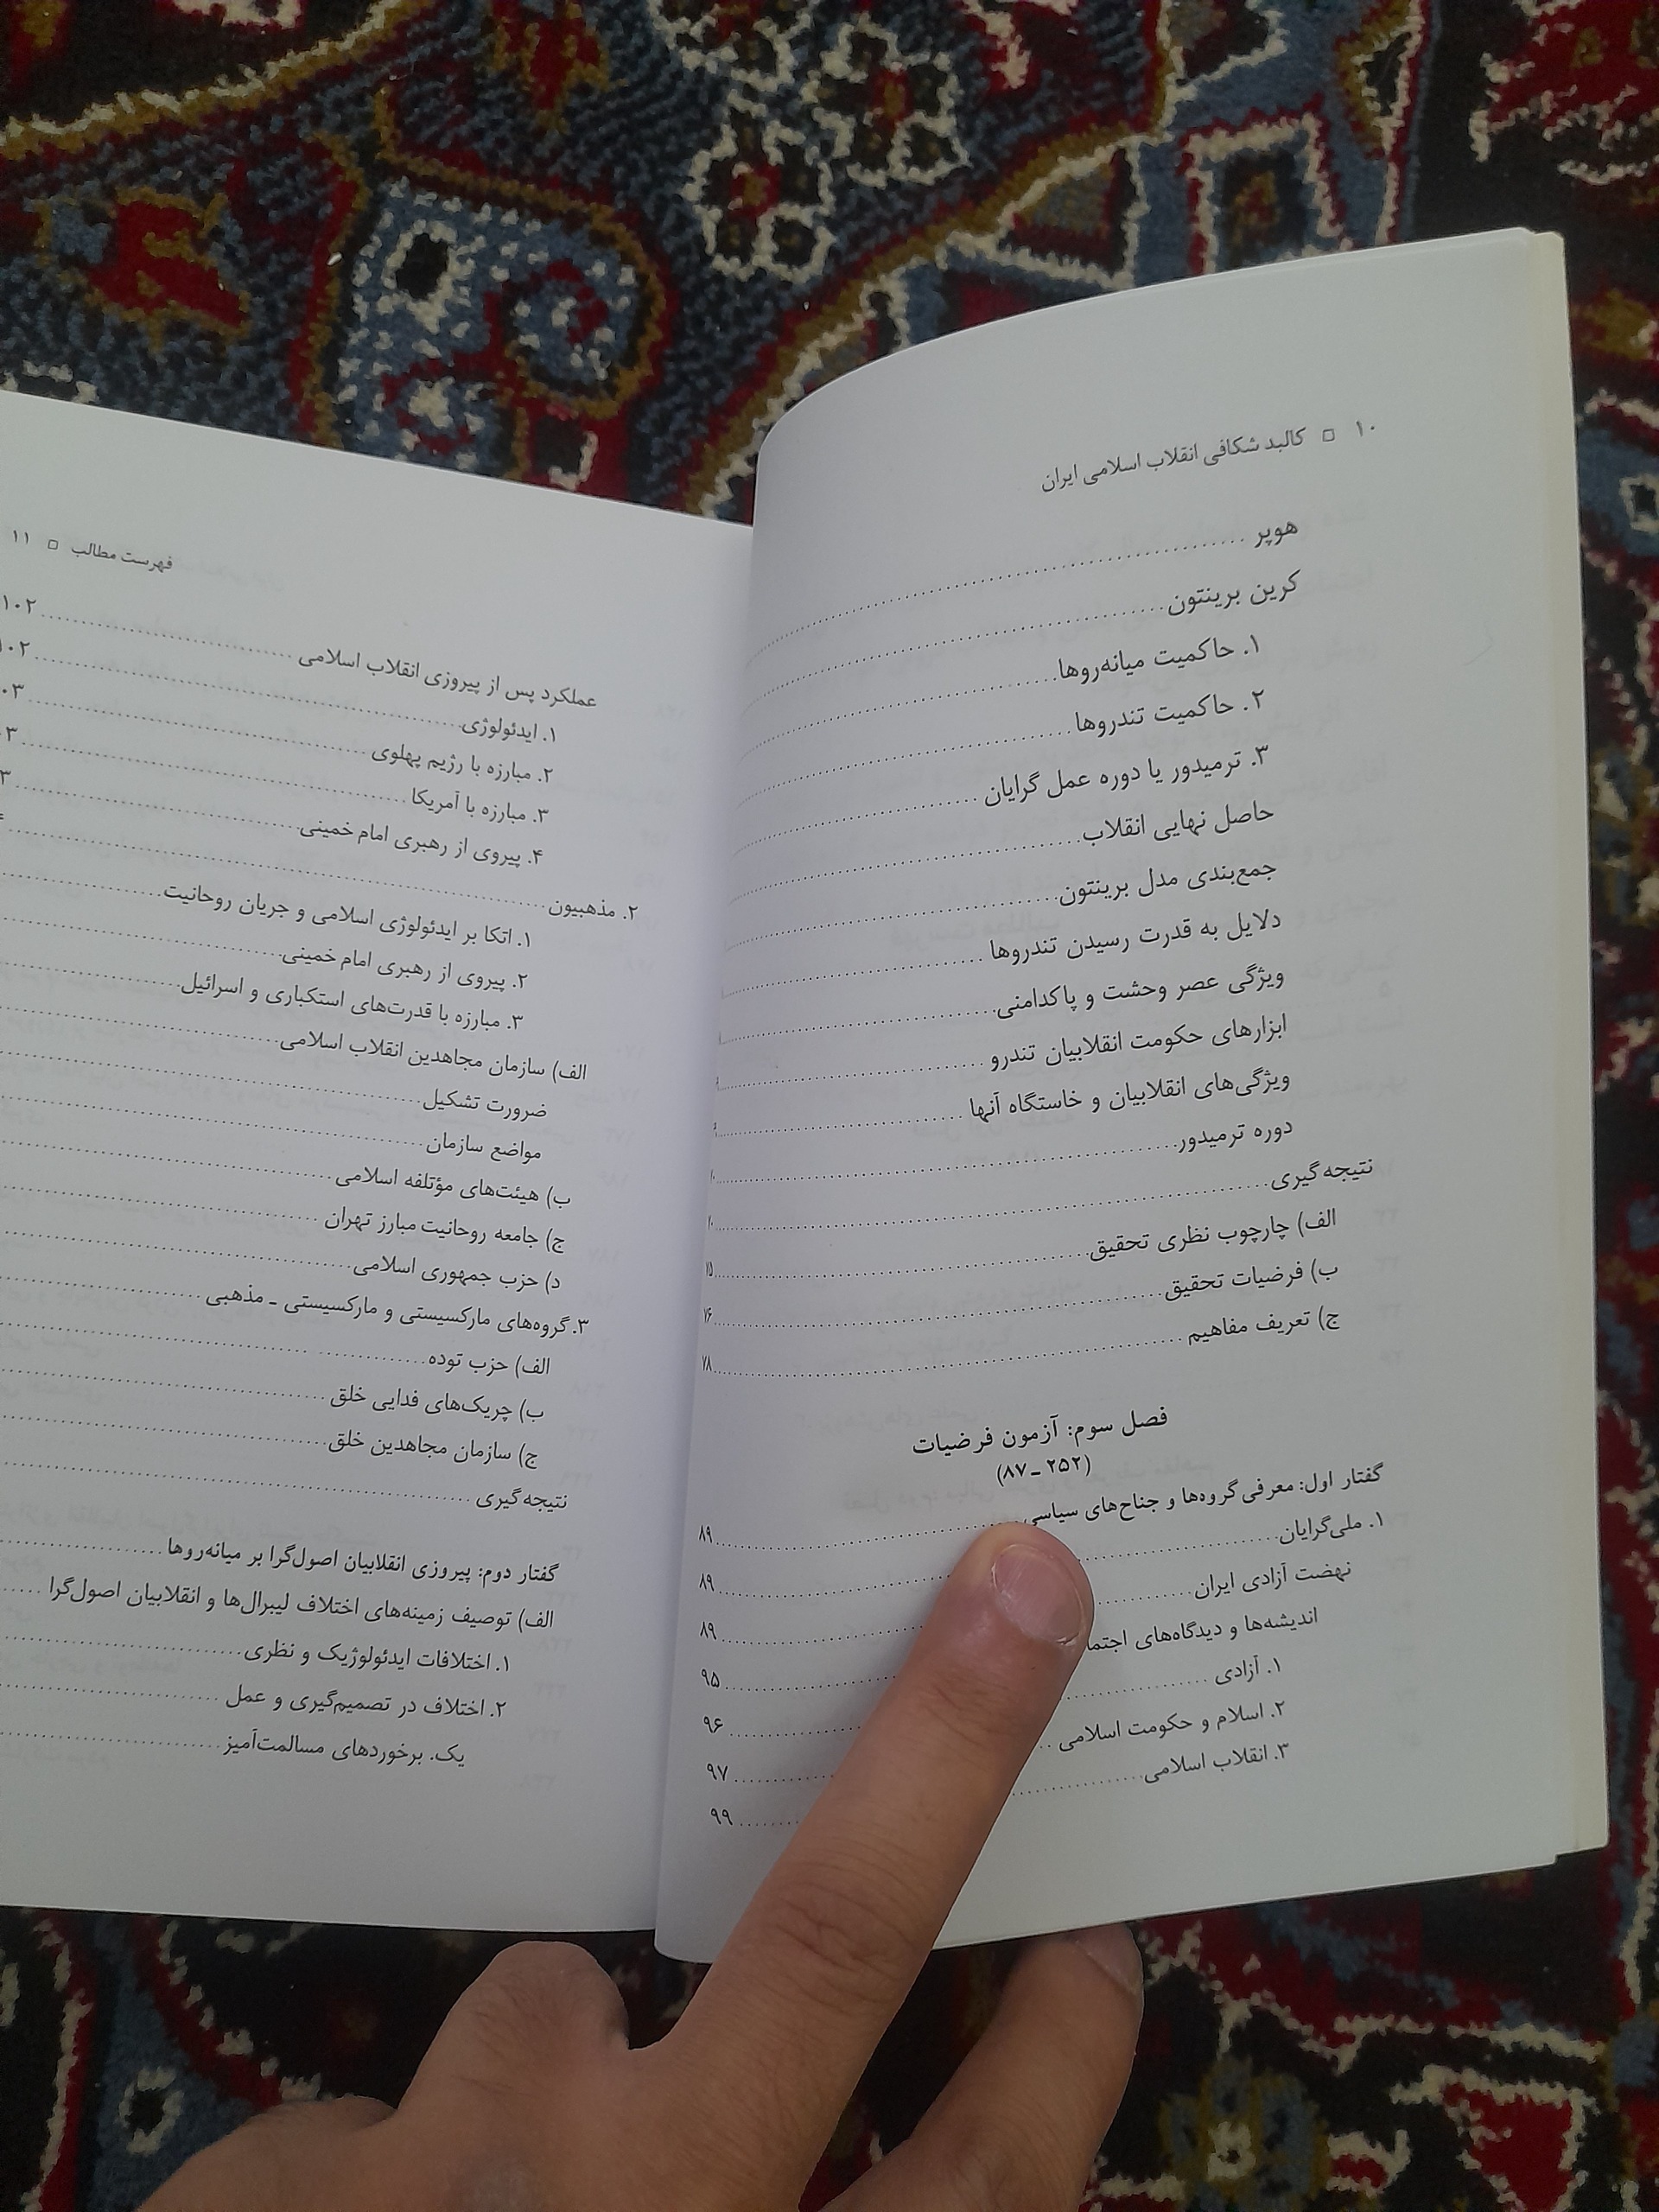 ۱۰ □ کالبد شکافی انقلاب اسلامی ایران
هوپر
کرین برینتون
۱. حاکمیت میانه‌روها
۲. حاکمیت تندروها
۳. ترمیدور یا دوره عمل گرایان
حاصل نهایی انقلاب
جمع‌بندی مدل برینتون
دلایل به قدرت رسیدن تندروها
ویژگی عصر وحشت و پاکدامنی
ابزارهای حکومت انقلابیان تندرو
ویژگی‌های انقلابیان و خاستگاه آنها
دوره ترمیدور
نتیجه‌گیری
الف) چارچوب نظری تحقیق ۷۵
ب) فرضیات تحقیق ۷۶
ج) تعریف مفاهیم ۷۸
فصل سوم: آزمون فرضیات
(۲۵۲ ـ ۸۷)
گفتار اول: معرفی گروه‌ها و جناح‌های سیاسی ۸۹
۱. ملی‌گرایان ۸۹
نهضت آزادی ایران ۸۹
اندیشه‌ها و دیدگاه‌های ۹۵
۱. آزادی ۹۶
۲. اسلام و حکومت اسلامی ۹۷
۳. انقلاب اسلامی ۹۹
فهرست مطالب □ ۱۱
عملکرد پس از پیروزی انقلاب اسلامی ۱۰۲
۱. ایدئولوژی
۲. مبارزه با رژیم پهلوی
۳. مبارزه با آمریکا
۴. پیروی از رهبری امام خمینی
۲. مذهبیون
۱. اتکا بر ایدئولوژی اسلامی و جریان روحانیت
۲. پیروی از رهبری امام خمینی
۳. مبارزه با قدرت‌های استکباری و اسرائیل
الف) سازمان مجاهدین انقلاب اسلامی
ضرورت تشکیل
مواضع سازمان
ب) هیئت‌های مؤتلفه اسلامی
ج) جامعه روحانیت مبارز تهران
د) حزب جمهوری اسلامی
۳. گروه‌های مارکسیستی و مارکسیستی ـ مذهبی
الف) حزب توده
ب) چریک‌های فدایی خلق
ج) سازمان مجاهدین خلق
نتیجه‌گیری
گفتار دوم: پیروزی انقلابیان اصول‌گرا بر میانه‌روها
الف) توصیف زمینه‌های اختلاف لیبرال‌ها و انقلابیان اصول‌گرا
۱. اختلافات ایدئولوژیک و نظری
۲. اختلاف در تصمیم‌گیری و عمل
یک. برخوردهای مسالمت‌آمیز